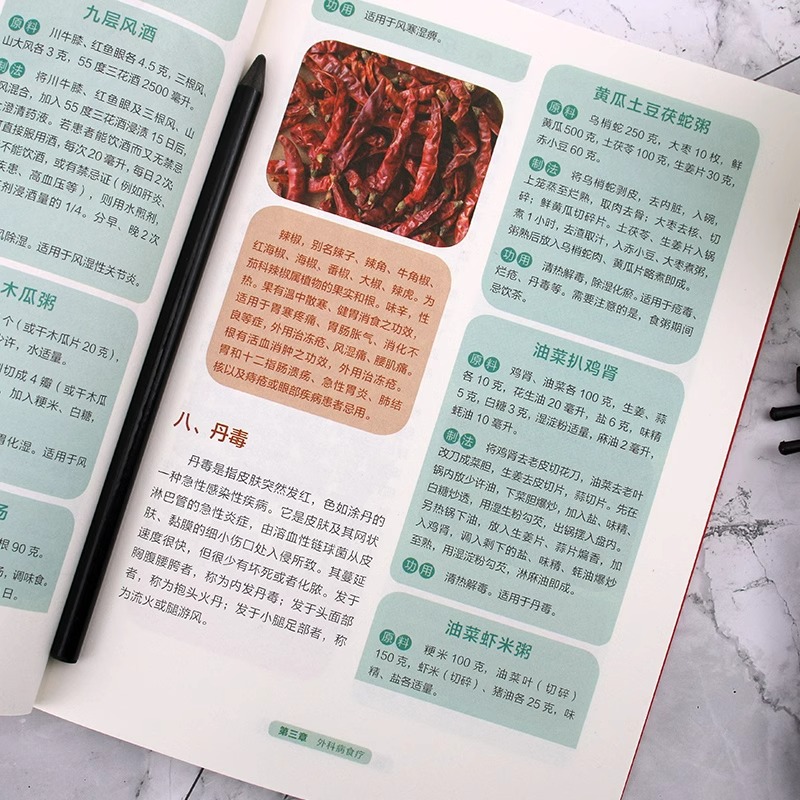 九层风酒
原料 川牛膝、红鱼眼各4.5克，三根风、
山大风各3克，55度三花酒2500毫升。
制法 将川牛膝、红鱼眼及三根风、山
风混合，加入55度三花酒浸渍15日后，
上澄清药液。若患者能饮酒而又无禁忌
可直接服用酒，每次20毫升，每日2次
不能饮酒，或有禁忌证（例如肝炎、
疾患、高血压等），则用水煎剂，
剂浸酒量的1/4。分早、晚2次
风除湿。适用于风湿性关节炎。
木瓜粥
个（或干木瓜片20克），
许，水适量。
切成4瓣（或干木瓜
加入粳米、白糖，
胃化湿。适用于风
汤
根90克。
汤，调味食，
日。
功用 适用于风寒湿痹。
辣椒，别名辣子、辣角、牛角椒、
红海椒、海椒、番椒、大椒、辣虎。为
茄科辣椒属植物的果实和根。味辛，性
热。果有温中散寒、健胃消食之功效，
适用于胃寒疼痛、胃肠胀气、消化不
良等症，外用治冻疮、风湿痛、腰肌痛。
根有活血消肿之功效，外用治冻疮。
胃和十二指肠溃疡、急性胃炎、肺结
核以及痔疮或眼部疾病患者忌用。
八、丹毒
丹毒是指皮肤突然发红，色如涂丹的
一种急性感染性疾病。它是皮肤及其网状
淋巴管的急性炎症，由溶血性链球菌从皮
肤、黏膜的细小伤口处入侵所致。其蔓延
速度很快，但很少有坏死或者化脓。发于
胸腹腰胯者，称为内发丹毒；发于头面部
者，称为抱头火丹；发于小腿足部者，称
为流火或腿游风。
黄瓜土豆茯蛇粥
原料 乌梢蛇250克，大枣10枚，鲜
黄瓜500克，土茯苓100克，生姜片30克，
赤小豆60克。
制法 将乌梢蛇剥皮，去内脏，入碗，
上笼蒸至烂熟，取肉去骨；大枣去核、切
碎；鲜黄瓜切碎片。土茯苓、生姜片入锅
煮1小时，去渣取汁，入赤小豆、大枣煮粥，
粥熟后放入乌梢蛇肉、黄瓜片略煮即成。
功用 清热解毒，除湿化瘀。适用于疮毒、
烂疮、丹毒等。需要注意的是，食粥期间
忌饮茶。
油菜扒鸡肾
原料 鸡肾、油菜各100克，生姜、蒜
各10克，花生油20毫升，盐6克，味精
5克，白糖3克，湿淀粉适量，麻油2毫升，
蚝油10毫升。
制法 将鸡肾去老皮切花刀，油菜去老叶
改刀成菜胆，生姜去皮切片，蒜切片。先在
锅内放少许油，下菜胆爆炒，加入盐、味精、
白糖炒透，用湿生粉勾芡，出锅摆入盘内。
另热锅下油，放入生姜片、蒜片煸香，加
入鸡肾，调入剩下的盐、味精、蚝油爆炒
至熟，用湿淀粉勾芡，淋麻油即成。
功用 清热解毒。适用于丹毒。
油菜虾米粥
原料 粳米100克，油菜叶（切碎）
150克，虾米（切碎）、猪油各25克，味
精、盐各适量。
第三章 外科病食疗